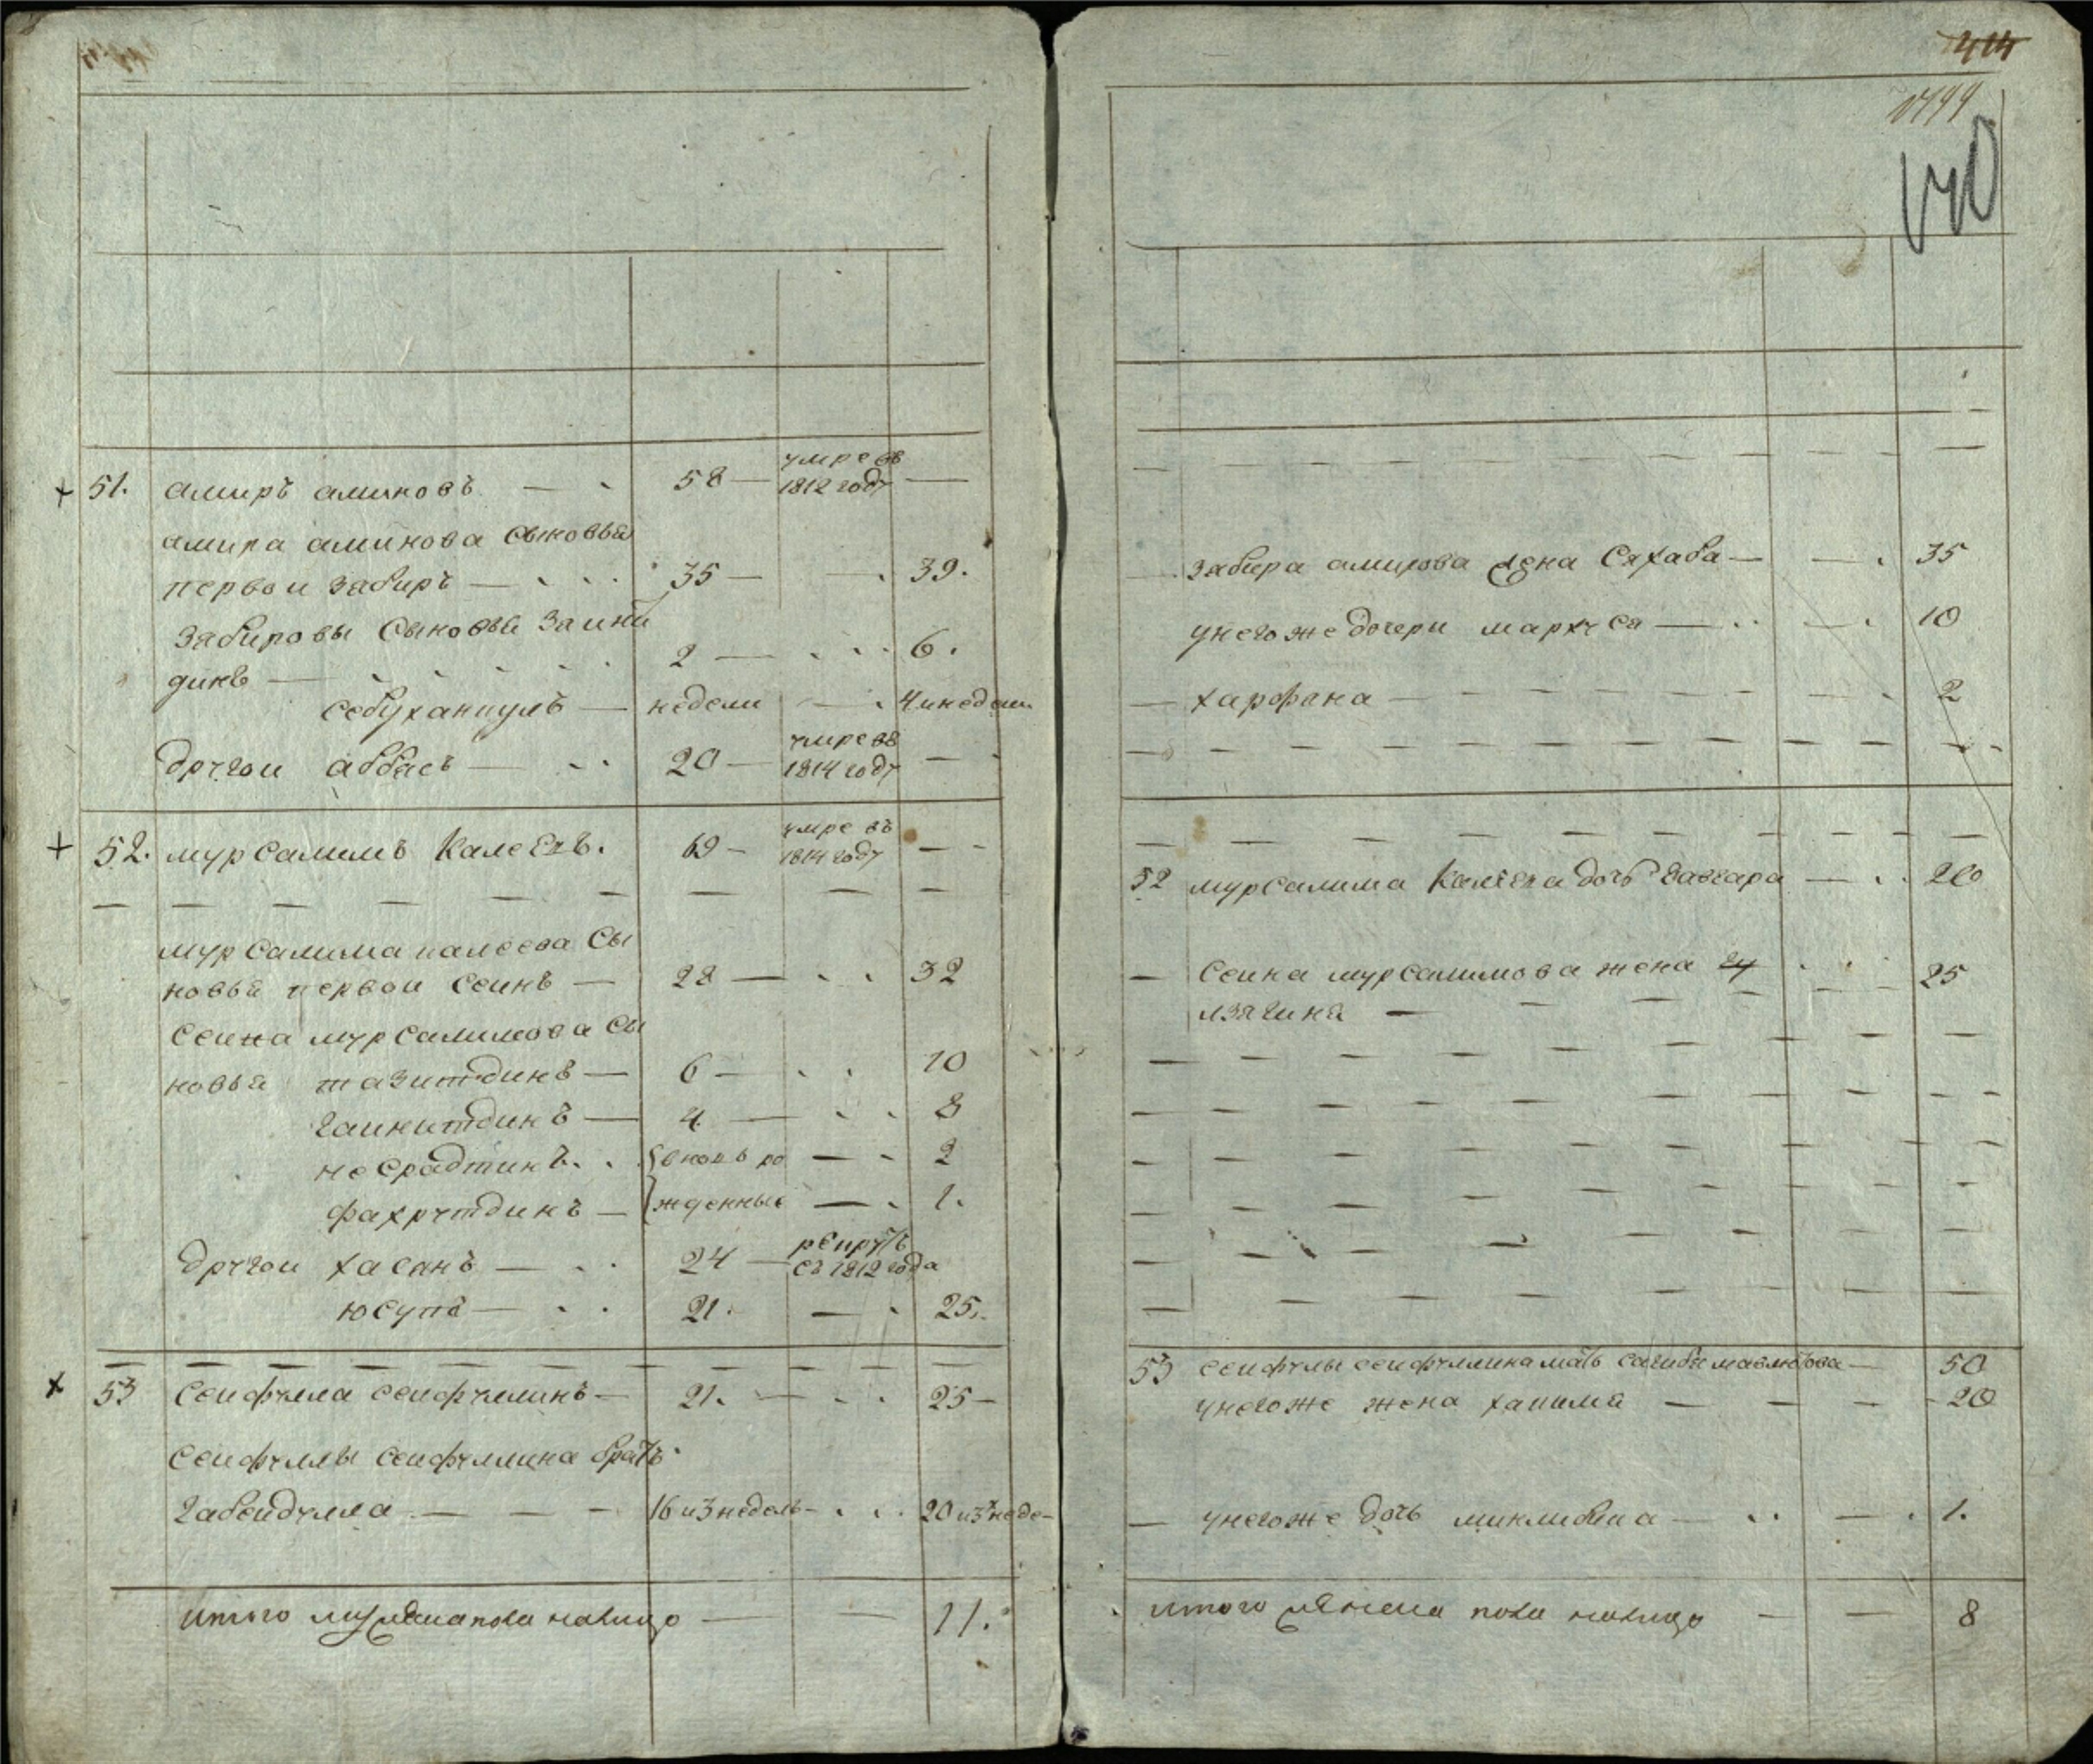 414
140
51. амиръ аминовъ — 58 — умре въ 1812 году —
амира аминова сыновья
первои забиръ — 35 — — 39.
забировы сыновья заини
динъ — 2 — 6.
себуханкулъ — недели — 4 и недели
другои аббасъ — 20 — умре въ 1814 году —
52. мурсалимъ Калеевъ. 69 — умре въ 1814 году —
мурсалима калеева сы
новья первои сеинъ — 28 — 32
сеина мурсалимова сы
новья тазитдинъ — 6 — 10
гаинитдинъ — 4 — 8
несрадтинъ. вновь ро — 2
фахрутдинъ — жденные — 1.
другои хасанъ — 24 — рекрутъ съ 1812 года
юсупъ — 21. — 25.
53 сеифулла сеифуллинъ — 21. — 25 —
сеифуллы сеифуллина братъ
габейдулла — 16 и 3 недель — 20 и 3 неде-
итого мужеска пола налицо — 11.
забира амирова жена Сахаба — 35
у него же дочери — 10
— 2
52 мурсалима Калеева дочь — 20
— сеина мурсалимова жена 25
53 сеифулы сеифуллина мать 50
у него же жена халима — 20
— у него же дочь — 1.
итого женска пола налицо — 8